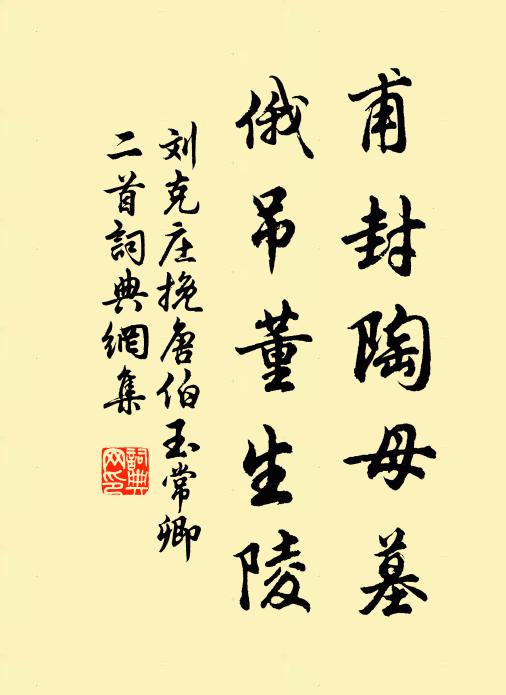 甫封陶母墓
俄吊董生陵
刘克庄挽唐伯玉常卿
二首詞典網集
詞典
网印